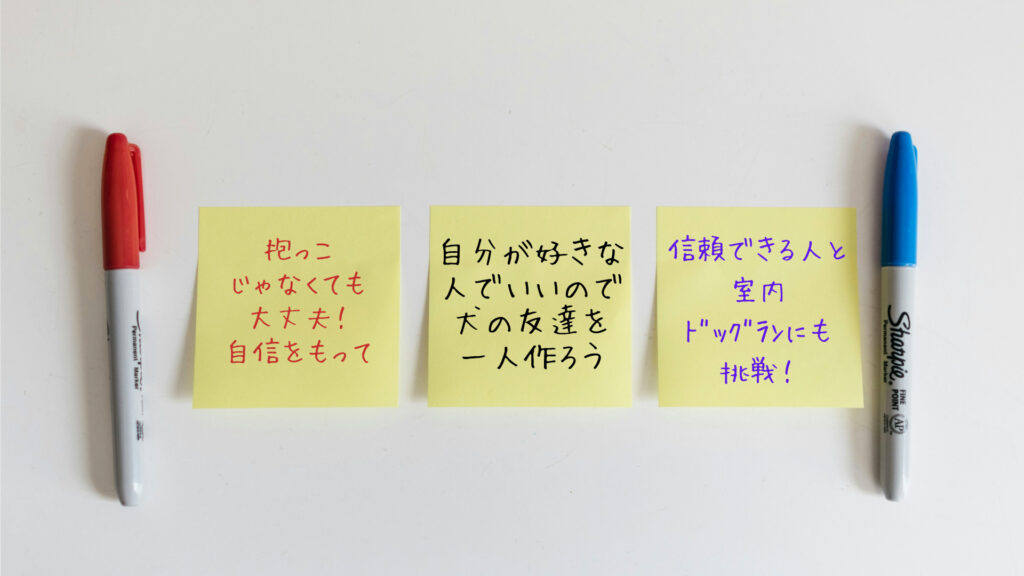 抱っこ
じゃなくても
大丈夫!
自信をもって
自分が好きな
人でいいので
犬の友達を
一人作ろう
信頼できる人と
室内
ドッグランにも
挑戦!
Permanent Marker
Sharpie
Permanent Marker
FINE
POINT
AP